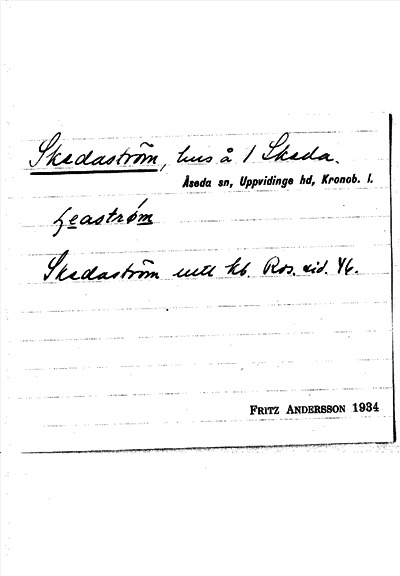 Skedaström, hus å 1 Skeda.
Åseda sn, Uppvidinge hd, Kronob. l.
ʃeastrøm
Skedaström utt kb. Ros. sid. 46.
FRITZ ANDERSSON 1934